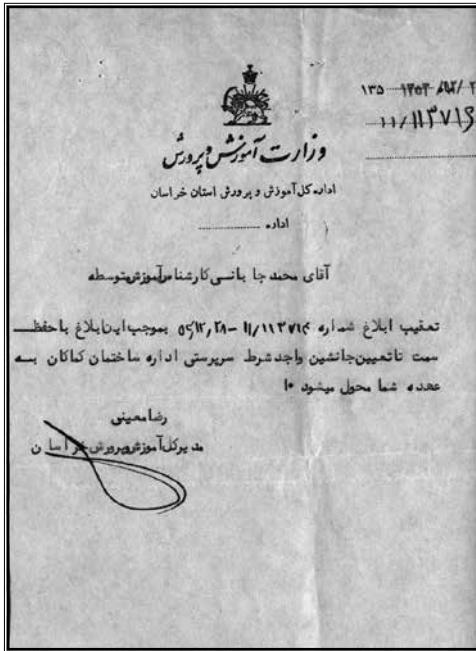 ۱۱/۱۱۳۷۱۶
وزارت آموزش و پرورش
اداره کل آموزش و پرورش استان خراسان
اداره ....................
آقای محمد جابانسی کارشناس آموزش متوسطه
تعقیب ابلاغ شماره ۱۱/۱۱۳۷۱۶ - بموجب این ابلاغ با حفظ
سمت تا تعیین جانشین واجد شرط سرپرستی اداره ساختمان کماکان به
عهده شما محول میشود
رضا معینی
مدیر کل آموزش و پرورش خراسان